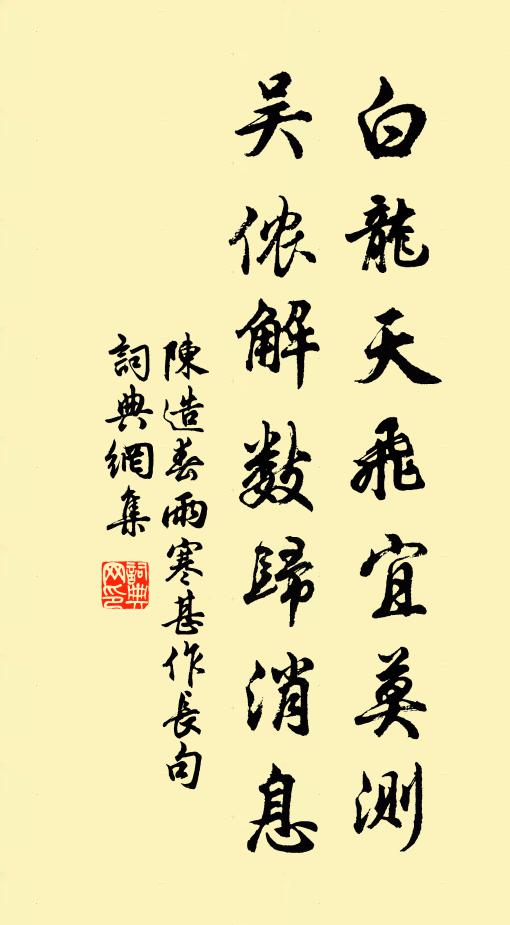 白龍天飛宜莫測
吴侬解数歸消息
陳造春雨寒甚作長句
詞典網集
詞典网印